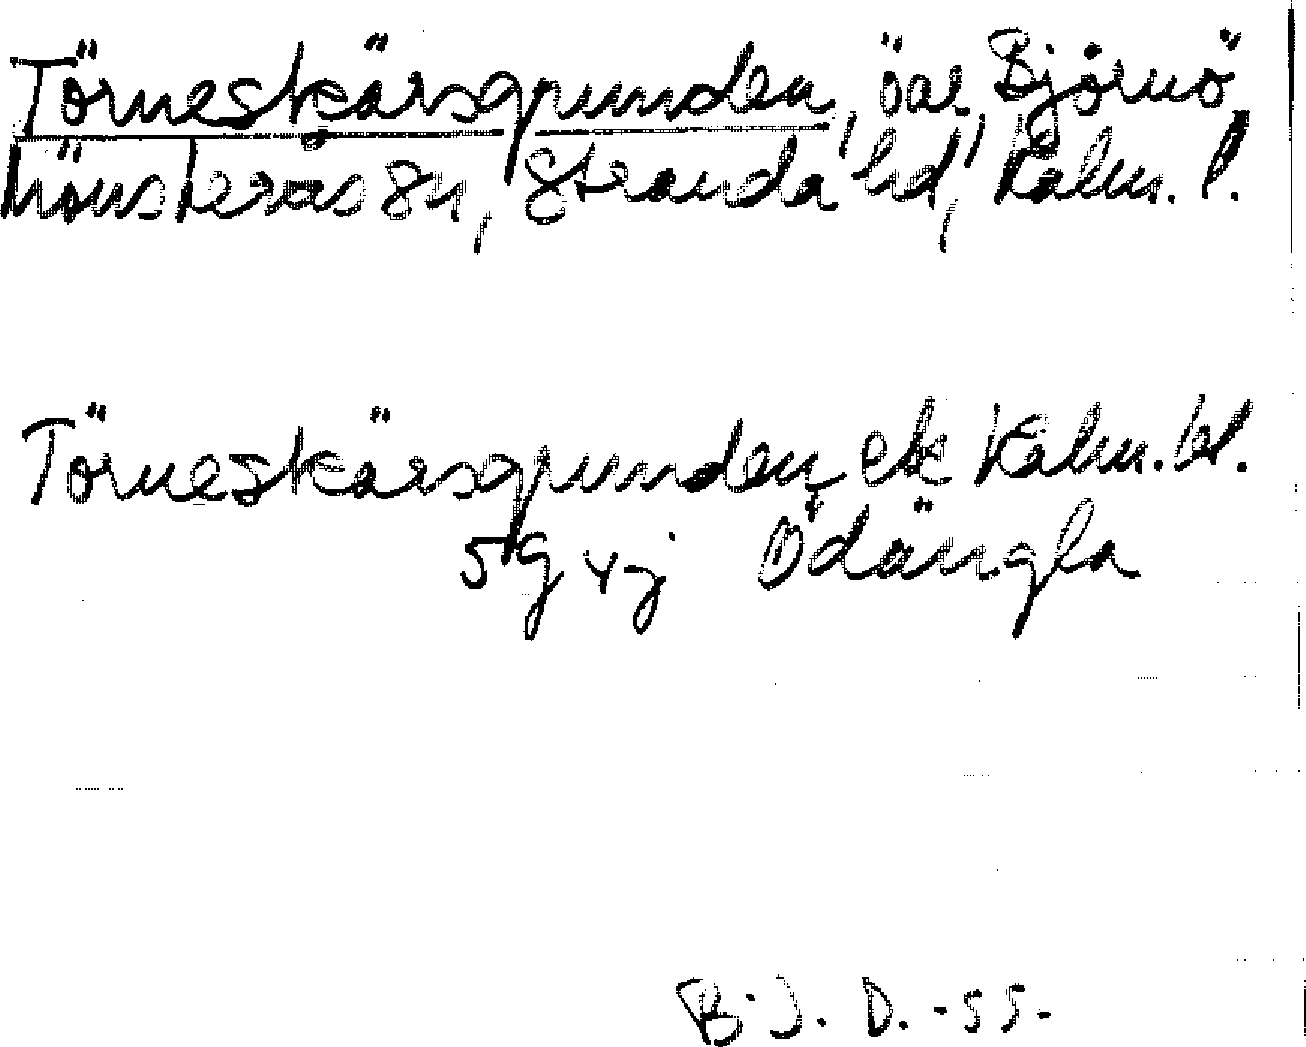 Törneskärsgrunden, öar, Björnö,
Mönsterås sn, Stranda hd, Kalm. l.
Törneskärsgrunden ek Kalm. bl.
5G 4j Ödängla
B. J. D. -55-